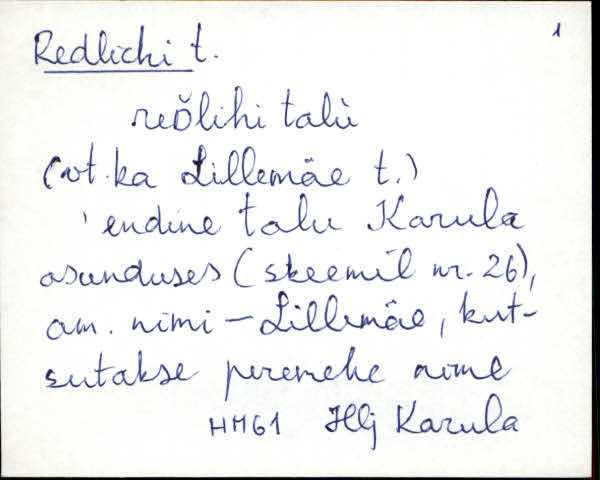 1
Redlichi t.
reòlihi talù
(vt. ka Lillemäe t.)
'endine talu Karula
asunduses (skeemil nr. 26),
am. nimi – Lillemäe, kut-
sutakse peremehe nime
HM61 Hlj Karula